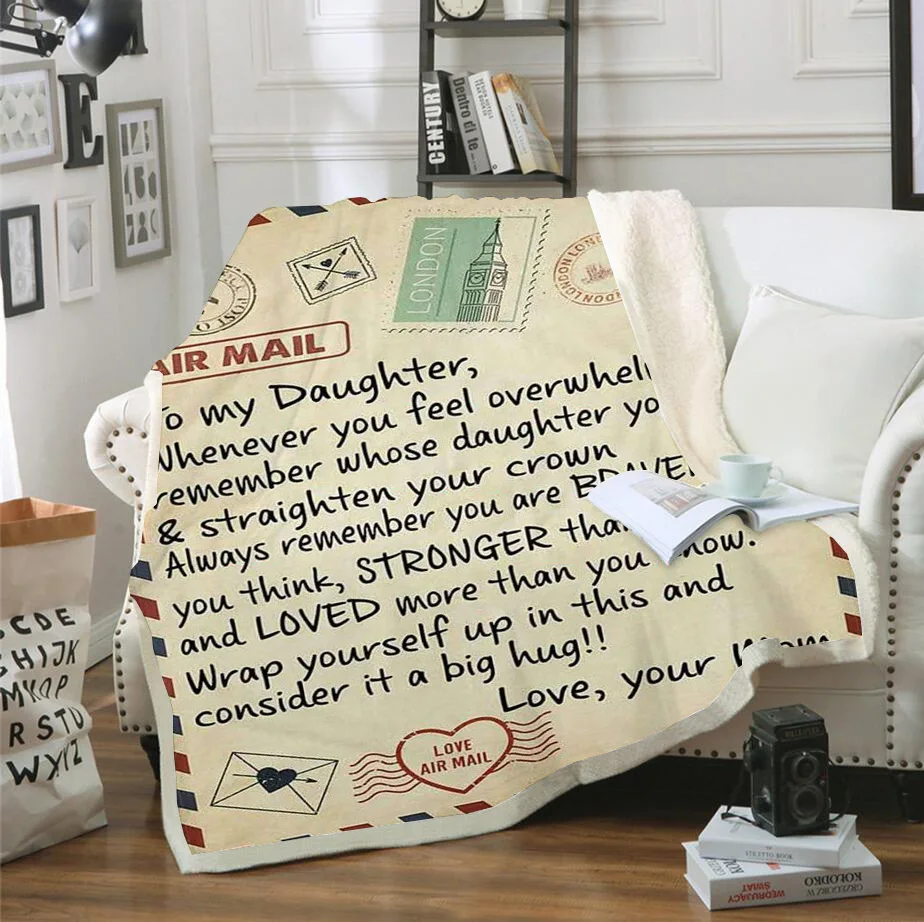 E
CENTURY
Dentro di te
LONDON
AIR MAIL
To my Daughter,
Whenever you feel overwhel
remember whose daughter yo
& straighten your crown
Always remember you are BRAVE
you think, STRONGER tha
and LOVED more than you know.
Wrap yourself up in this and
consider it a big hug!!
Love, your Mom
LOVE
AIR MAIL
CDE
GHIJK
MNOP
RSTU
WXYZ
STILETTO BOOK
WĘDRUJĄCY ŚWIAT
GRZEGORZ W KOŁODKO